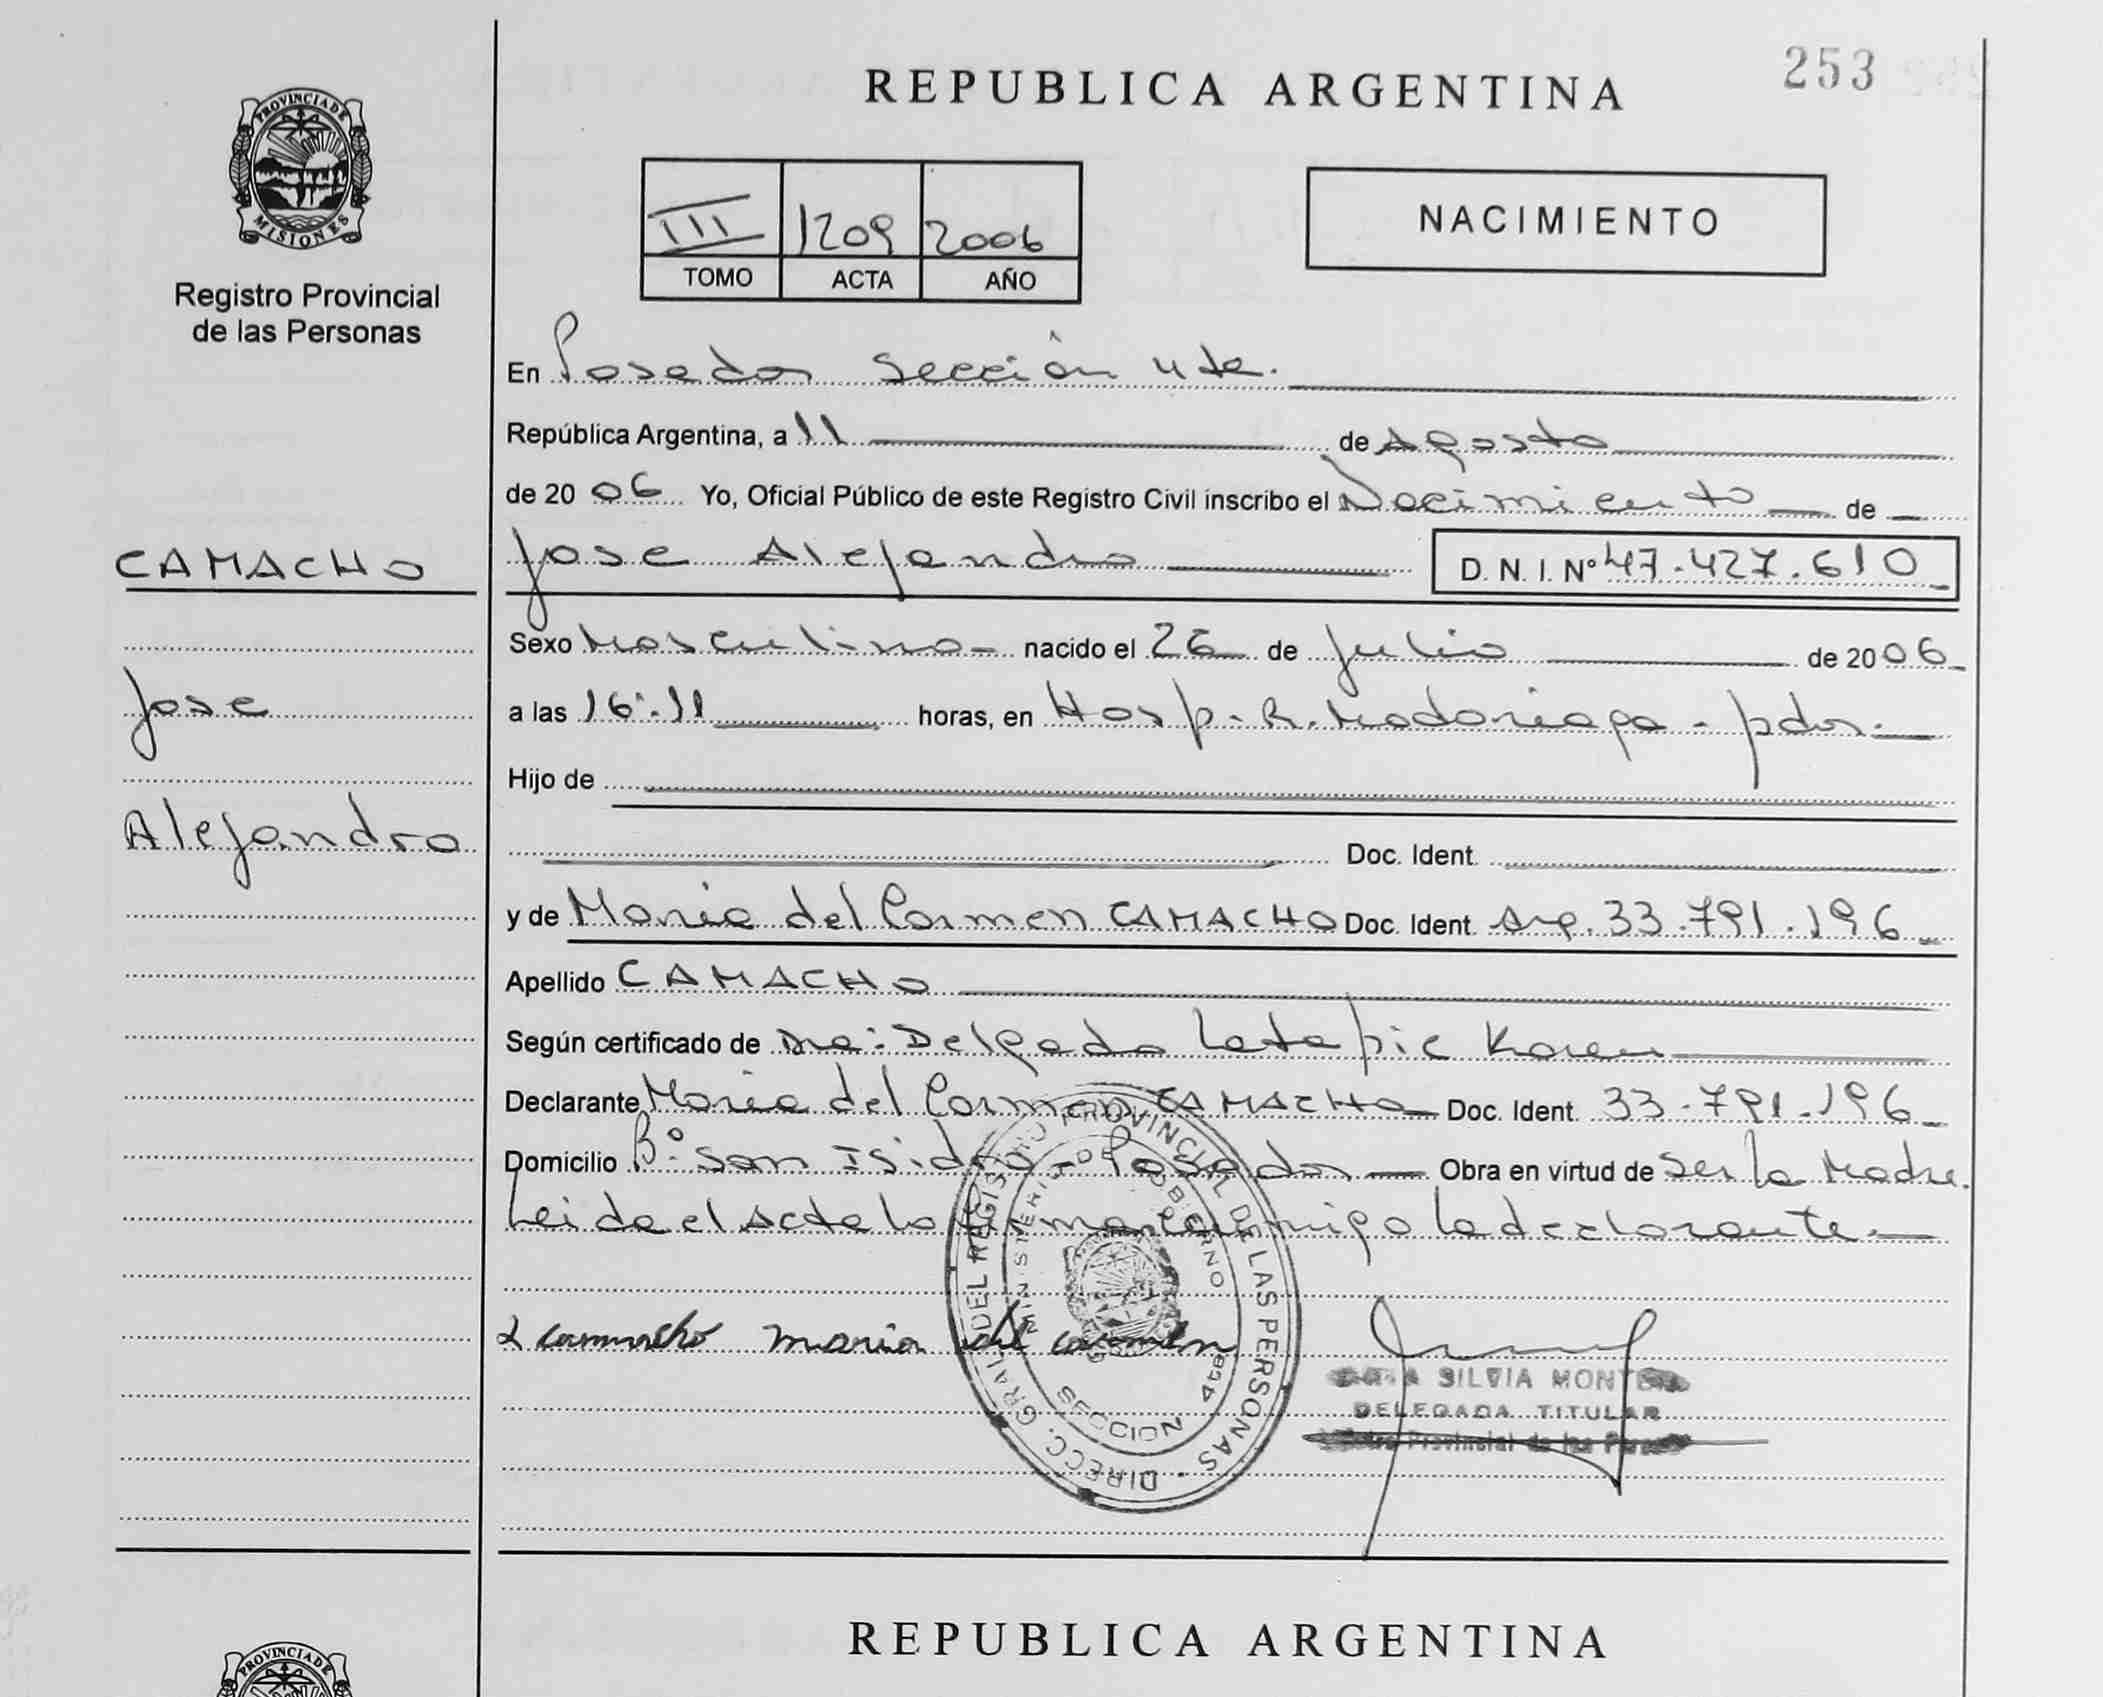 253
REPUBLICA ARGENTINA
PROVINCIA DE
MISIONES
Registro Provincial
de las Personas
III 1209 2006
TOMO ACTA AÑO
NACIMIENTO
En Posadas Sección 4ta.
República Argentina, a 11 de Agosto
de 2006 Yo, Oficial Público de este Registro Civil inscribo el Nacimiento de
CAMACHO
Jose Alejandro D. N. I. Nº 47.427.610
Sexo Masculino nacido el 26 de Julio de 2006
Jose
a las 16:11 horas, en Hosp. R. Madariaga - pdas.
Hijo de
Alejandro
Doc. Ident.
y de Maria del Carmen CAMACHO Doc. Ident. Arg. 33.791.196
Apellido CAMACHO
Según certificado de Dra: Delgado Latapie Karen
Declarante Maria del Carmen CAMACHO Doc. Ident. 33.791.196
Domicilio Bº San Isidro - Posadas Obra en virtud de ser la Madre.
Leida el Acta la firma conmigo la declarante.
camacho maria del carmen
DIRECC. GRAL. DEL REGISTRO PROVINCIAL DE LAS PERSONAS -
MINISTERIO DE GOBIERNO
SECCION 4ta
SILVIA
DELEGADA TITULAR
Provincial de las
REPUBLICA ARGENTINA
PROVINCIA DE